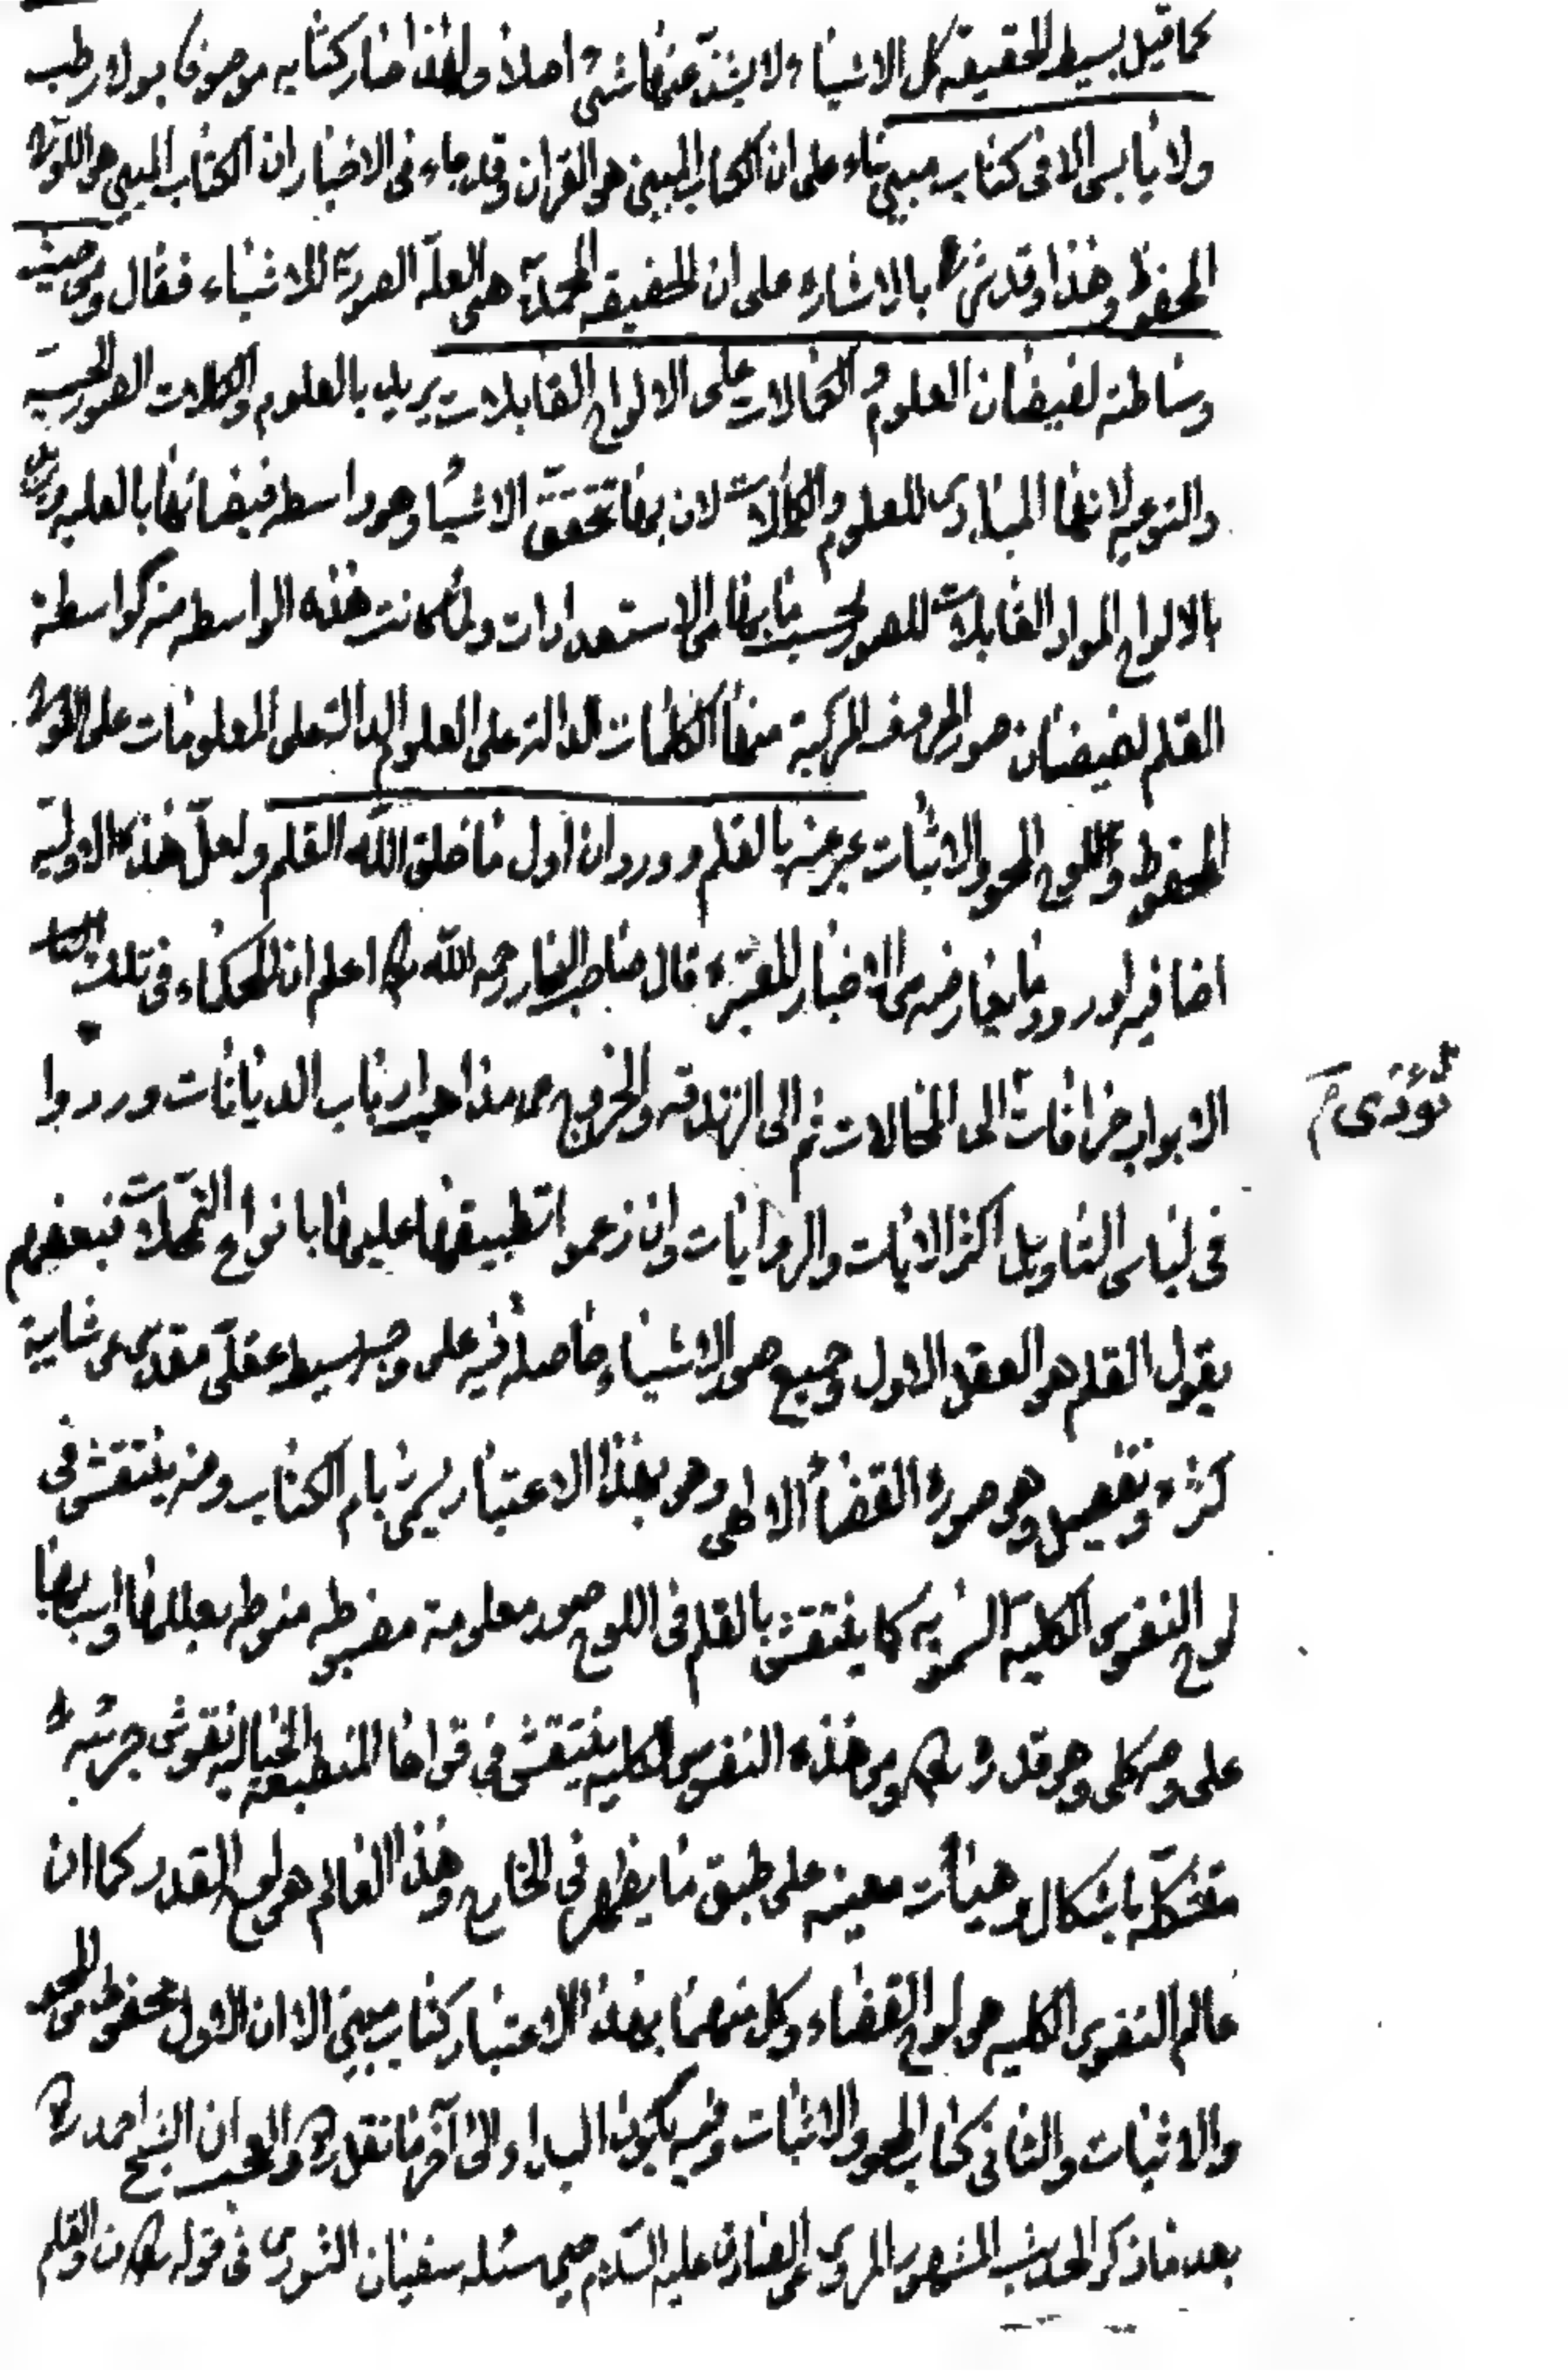 كما قيل بسيط الحقيقة كل الاشياء ولا يشذ عنها شئ اصلا ولهذا صار كتابه موصوفا بولا رطب
ولا يابس الا فى كتاب مبين بناء على ان الكتاب المبين هو القران وقد جاء فى الاخبار ان الكتاب المبين هو اللوح
المحفوظ وهذا وقد شرع بالاشاره على ان الحقيقه المحمديه هى العلة الصورية للاشياء فقال ومن حيث
وساطته لفيضان العلوم و الكمالات على الالواح القابلات يريد بالعلوم والكمالات الصور الجسميه
والنوعيه لانها المبادى للعلوم والكمالات لان بها تحقق الاشياء وهو واسطه فيضانها بالعليه ويريد
بالالواح المواد القابلات للصور بحسب ما بها من الاستعدادات ولما كانت هذه الواسطه منه كواسطة
القلم لفيضان صور الحروف المركبة منها الكلمات الدالة على العلوم الدالة على المعلومات على اللوح
المحفوظ واللوح المحو والاثبات عبر عنه بالقلم وورد ان اول ما خلق الله القلم ولعل هذه الاولية
اضافيه لورود ما يعارضه من الاخبار المعتبره قال صاحب البحار رحمه الله اعلم ان للحكماء فى تلك
الابواب خرافات الى المحالات ثم الى الزندقه والخروج عن مذاهب ارباب الديانات وردوا
تؤدى م
فى لباس التاويل اكثر الايات والروايات وان زعموا تطبيقها عليها بانواع التمحلات فبعضهم
يقول القلم هو العقل الاول وجميع صور الاشياء حاصله فيه على وجه بسيط عقلى مقدس عن شايبة
كثره وتفصيل وهو صورة القضاء الالهى وهو بهذا الاعتبار يسمى بام الكتاب ومنه ينتقش فى
لوح النفوس الكلية السمويه كما ينتقش بالقلم فى اللوح صور معلومة مضبوطه منوطه بعللها واسبابها
على وجه كلى وهو قدره تعالى ومن هذه النفوس الكليه ينتقش فى قواها المنطبعه الخياليه نقوش جزئيه
متشكلة باشكال وهيئات معينه على طبق ما يظهر فى الخارج وهذا العالم هو لوح القدر كما ان
عالم النفوس الكليه هو لوح القضاء وكل منهما بهذا الاعتبار كتاب مبين الا ان الاول محفوظ من المحو
والاثبات والثانى كتاب المحو والاثبات وفيه يكون البداء الى آخر ما نقله والعجب ان الشيخ احمد ره
بعد ما ذكر الحديث المشهور المروى عن الصادق عليه السلام حين سئله سفيان الثورى فى قوله تعالى ن والقلم